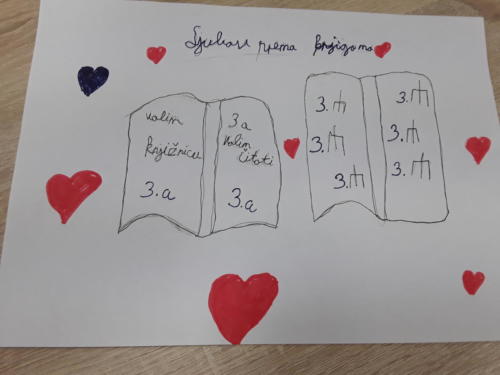 Ljubav prema knjigama
volim
knjižnicu
3.a
3 a
volim
čitati
3.a
3.ⰰ
3.ⰰ
3.ⰰ
3.ⰰ
3.ⰰ
3.ⰰ